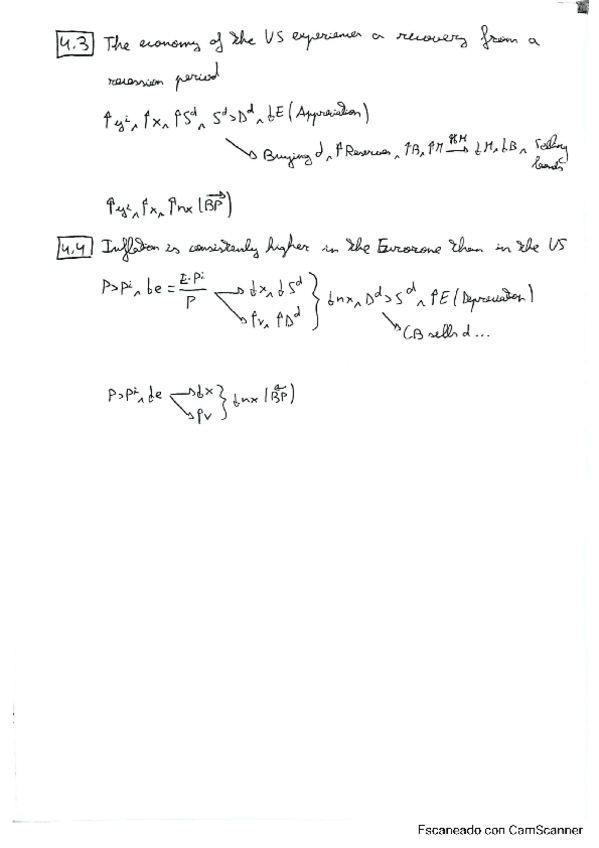 4.3 The economy of the US experiences a recovery from a
recession period
↑yⁱ, ↑x, ↑Sᵈ, Sᵈ>Dᵈ, ↓E (Appreciation)
Buying d, ↑Reserves, ↑B, ↑M → ↓M, ↓B, Selling
bonds
↑yⁱ, ↑x, ↑nx (BP→)
4.4 Inflation is consistently higher in the Eurozone than in the US
P>Pⁱ, ↓e = E·Pⁱ/P → ↓x, ↓Sᵈ } ↓nx, Dᵈ>Sᵈ, ↑E (Depreciation)
↑v, ↑Dᵈ
CB sells d...
P>Pⁱ, ↓e → ↓x } ↓nx (BP←)
↑v
Escaneado con CamScanner